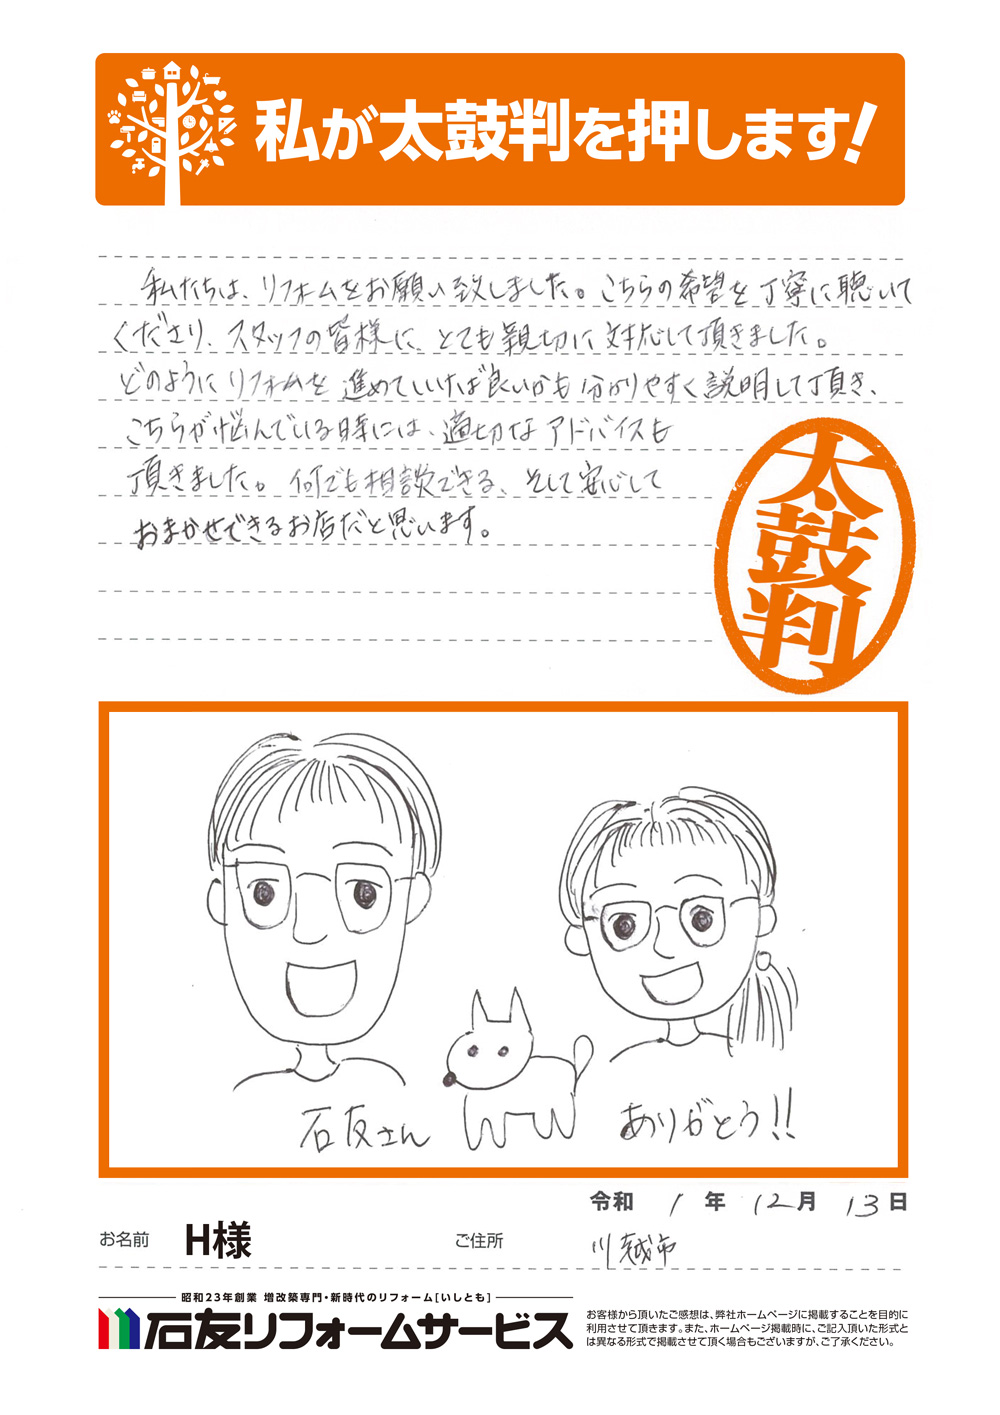 私が太鼓判を押します!
私たちは、リフォームをお願い致しました。こちらの希望を丁寧に聴いて
くださり、スタッフの皆様に、とても親切に対応して頂きました。
どのようにリフォームを進めていけば良いかも分かりやすく説明して頂き、
こちらが悩んでいる時には、適切なアドバイスも
頂きました。何でも相談できる、そして安心して
おまかせできるお店だと思います。
太鼓判
石友さん
ありがとう!!
令和 1 年 12月 13日
お名前 H様 ご住所 川越市
昭和23年創業 増改築専門・新時代のリフォーム[いしとも]
石友リフォームサービス
お客様から頂いたご感想は、弊社ホームページに掲載することを目的に
利用させて頂きます。また、ホームページ掲載時に、ご記入頂いた形式と
は異なる形式で掲載させて頂く場合もございますが、ご了承ください。